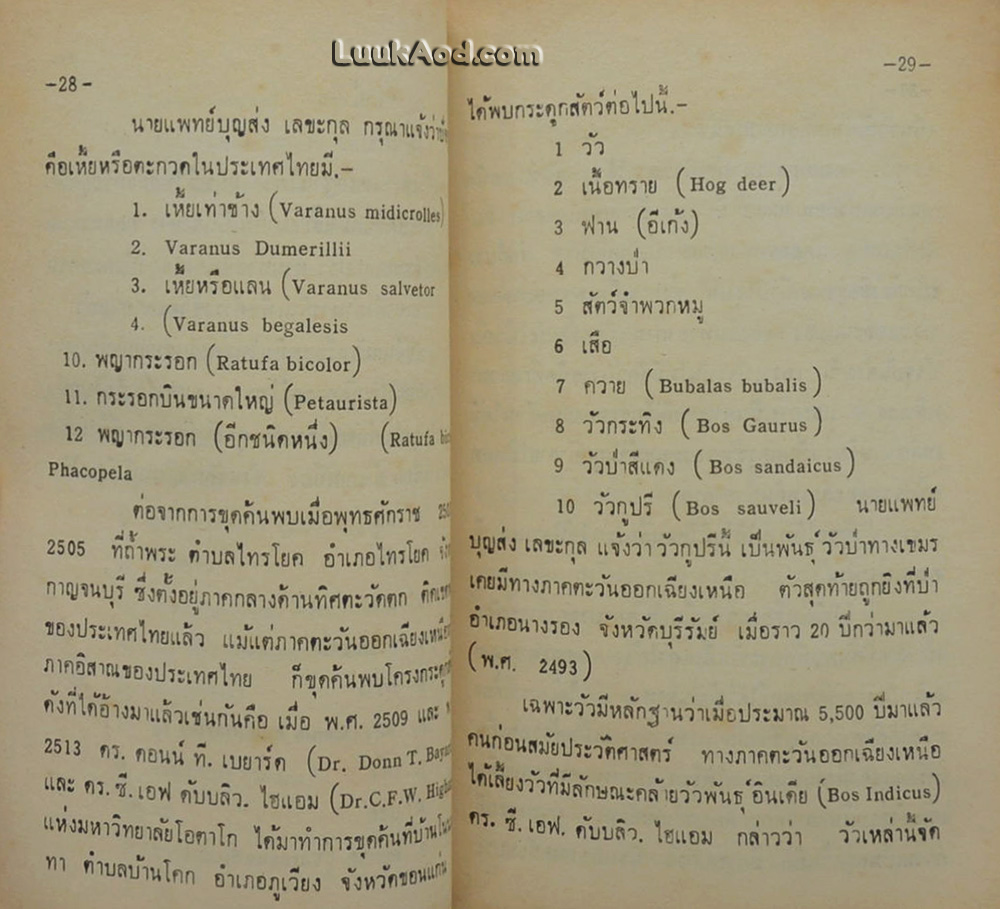 LuukAod.com
-28-
นายแพทย์บุญส่ง เลขะกุล กรุณาแจ้งว่า
คือเหี้ยหรือตะกวดในประเทศไทยมี.-
1. เหี้ยเท่าช้าง (Varanus midicrolles)
2. Varanus Dumerillii
3. เหี้ยหรือแลน (Varanus salvetor
4. (Varanus begalesis
10. พญากระรอก (Ratufa bicolor)
11. กระรอกบินขนาดใหญ่ (Petaurista)
12 พญากระรอก (อีกชนิดหนึ่ง) (Ratufa
Phacopela
ต่อจากการขุดค้นพบเมื่อพุทธศักราช
2505 ที่ถ้ำพระ ตำบลไทรโยค อำเภอไทรโยค
กาญจนบุรี ซึ่งตั้งอยู่ภาคกลางด้านทิศตะวัดตก
ของประเทศไทยแล้ว แม้แต่ภาคตะวันออกเฉียงเหนือ
ภาคอิสาณของประเทศไทย ก็ขุดค้นพบโครงกระดูก
ดังที่ได้อ้างมาแล้วเช่นกันคือ เมื่อ พ.ศ. 2509 และ
2513 ดร. ดอนน์ ที. เบยาร์ด (Dr. Donn T.
และ ดร. ซี. เอฟ ดับบลิว. ไฮแอม (Dr.C.F.W.
แห่งมหาวิทยาลัยโอตาโก ได้มาทำการขุดค้นที่บ้าน
ทา ตำบลบ้านโคก อำเภอภูเวียง จังหวัดขอนแก่น
-29-
ได้พบกระดูกสัตว์ต่อไปนี้.-
1 วัว
2 เนื้อทราย (Hog deer)
3 ฟาน (อีเก้ง)
4 กวางป่า
5 สัตว์จำพวกหมู
6 เสือ
7 ควาย (Bubalas bubalis)
8 วัวกระทิง (Bos Gaurus)
9 วัวป่าสีแดง (Bos sandaicus)
10 วัวกูปรี (Bos sauveli) นายแพทย์
บุญส่ง เลขะกุล แจ้งว่า วัวกูปรีนี้ เป็นพันธุ์วัวป่าทางเขมร
เคยมีทางภาคตะวันออกเฉียงเหนือ ตัวสุดท้ายถูกยิงที่ป่า
อำเภอนางรอง จังหวัดบุรีรัมย์ เมื่อราว 20 ปีกว่ามาแล้ว
(พ.ศ. 2493)
เฉพาะวัวมีหลักฐานว่าเมื่อประมาณ 5,500 ปีมาแล้ว
คนก่อนสมัยประวัติศาสตร์ ทางภาคตะวันออกเฉียงเหนือ
ได้เลี้ยงวัวที่มีลักษณะคล้ายวัวพันธุ์อินเดีย (Bos Indicus)
ดร. ซี. เอฟ. ดับบลิว. ไฮแอม กล่าวว่า วัวเหล่านี้จัด